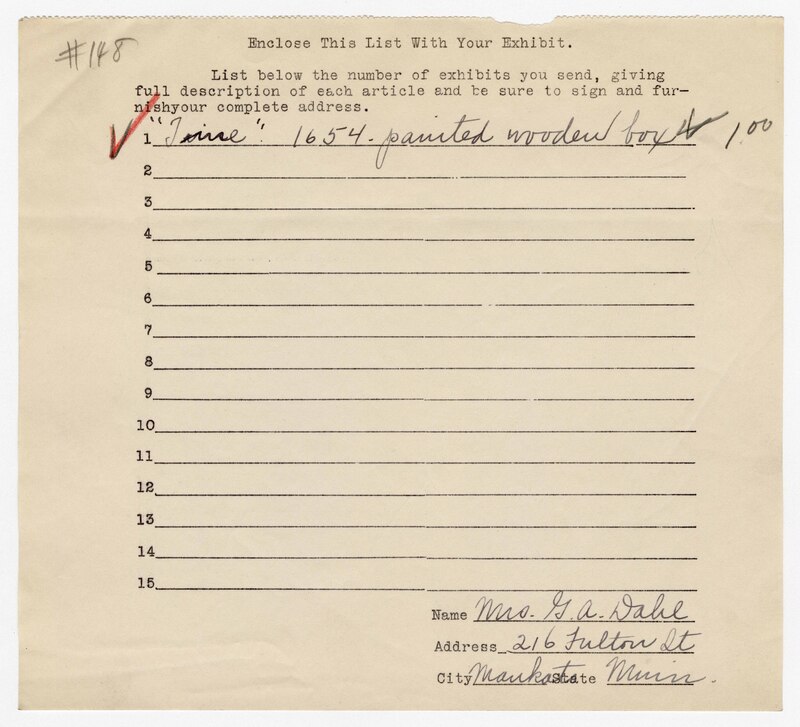 #148
Enclose This List With Your Exhibit.
List below the number of exhibits you send, giving
full description of each article and be sure to sign and fur-
nishyour complete address.
1 "Tine". 1654 - painted wooden box 1.00
2
3
4
5
6
7
8
9
10
11
12
13
14
15
Name Mrs. G. A. Dahl
Address 216 Fulton St
City Mankato State Minn.